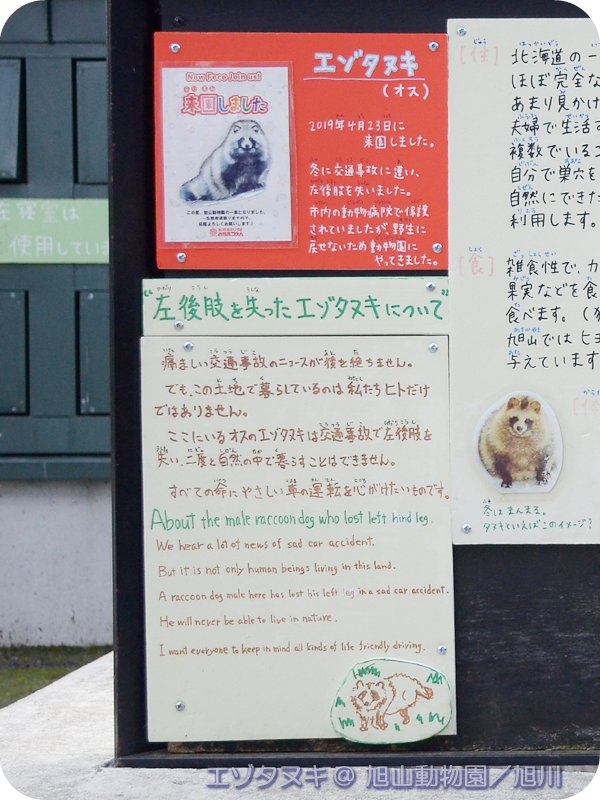 New Face Join us!
来園しました
エゾタヌキ
(オス)
2019年4月23日に
来園しました。
冬に交通事故に遭い、
左後肢を失いました。
市内の動物病院で保護
されていましたが、野生に
戻せないため動物園に
やってきました。
"左後肢を失ったエゾタヌキについて"
痛ましい交通事故のニュースが後を絶ちません。
でも、この土地で暮らしているのは私たちヒトだけ
ではありません。
ここにいるオスのエゾタヌキは交通事故で左後肢を
失い、二度と自然の中で暮らすことはできません。
すべての命にやさしい車の運転を心がけたいものです。
About the male raccoon dog who lost left hind leg.
We hear a lot of news of sad car accident.
But it is not only human beings living in this land.
A raccoon dog male here has lost his left leg in a sad car accident.
He will never be able to live in nature.
I want everyone to keep in mind all kinds of life friendly driving.
[住]
北海道の一
ほぼ完全な
あまり見かけ
夫婦で生活す
複数でいるこ
自分で巣穴を
自然にできた
利用します。
[食]
雑食性で、カ
果実などを食
食べます。(
旭山ではヒヨ
与えています
冬はまんまる。
タヌキといえばこのイメージ?
在寝室は
使用してい
エゾタヌキ@旭山動物園/旭川